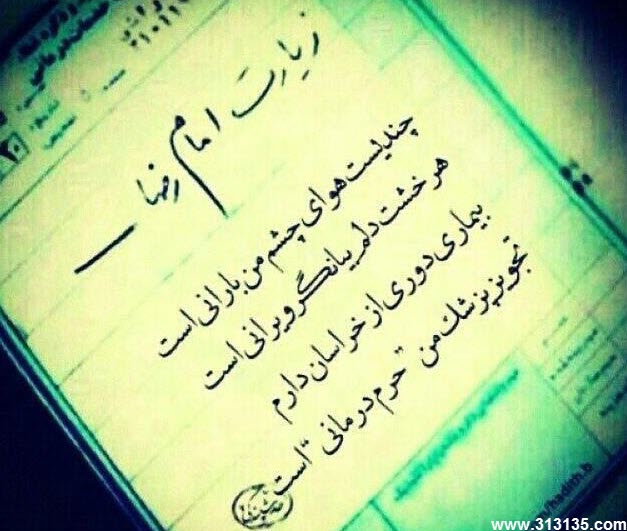 زیارت امام رضا
چندیست هوای چشم من بارانی است
هر خشت دلم بیانگر ویرانی است
بیماری دوری از خراسان دارم
تجویز پزشک من "حرم درمانی" است
www.313135.com